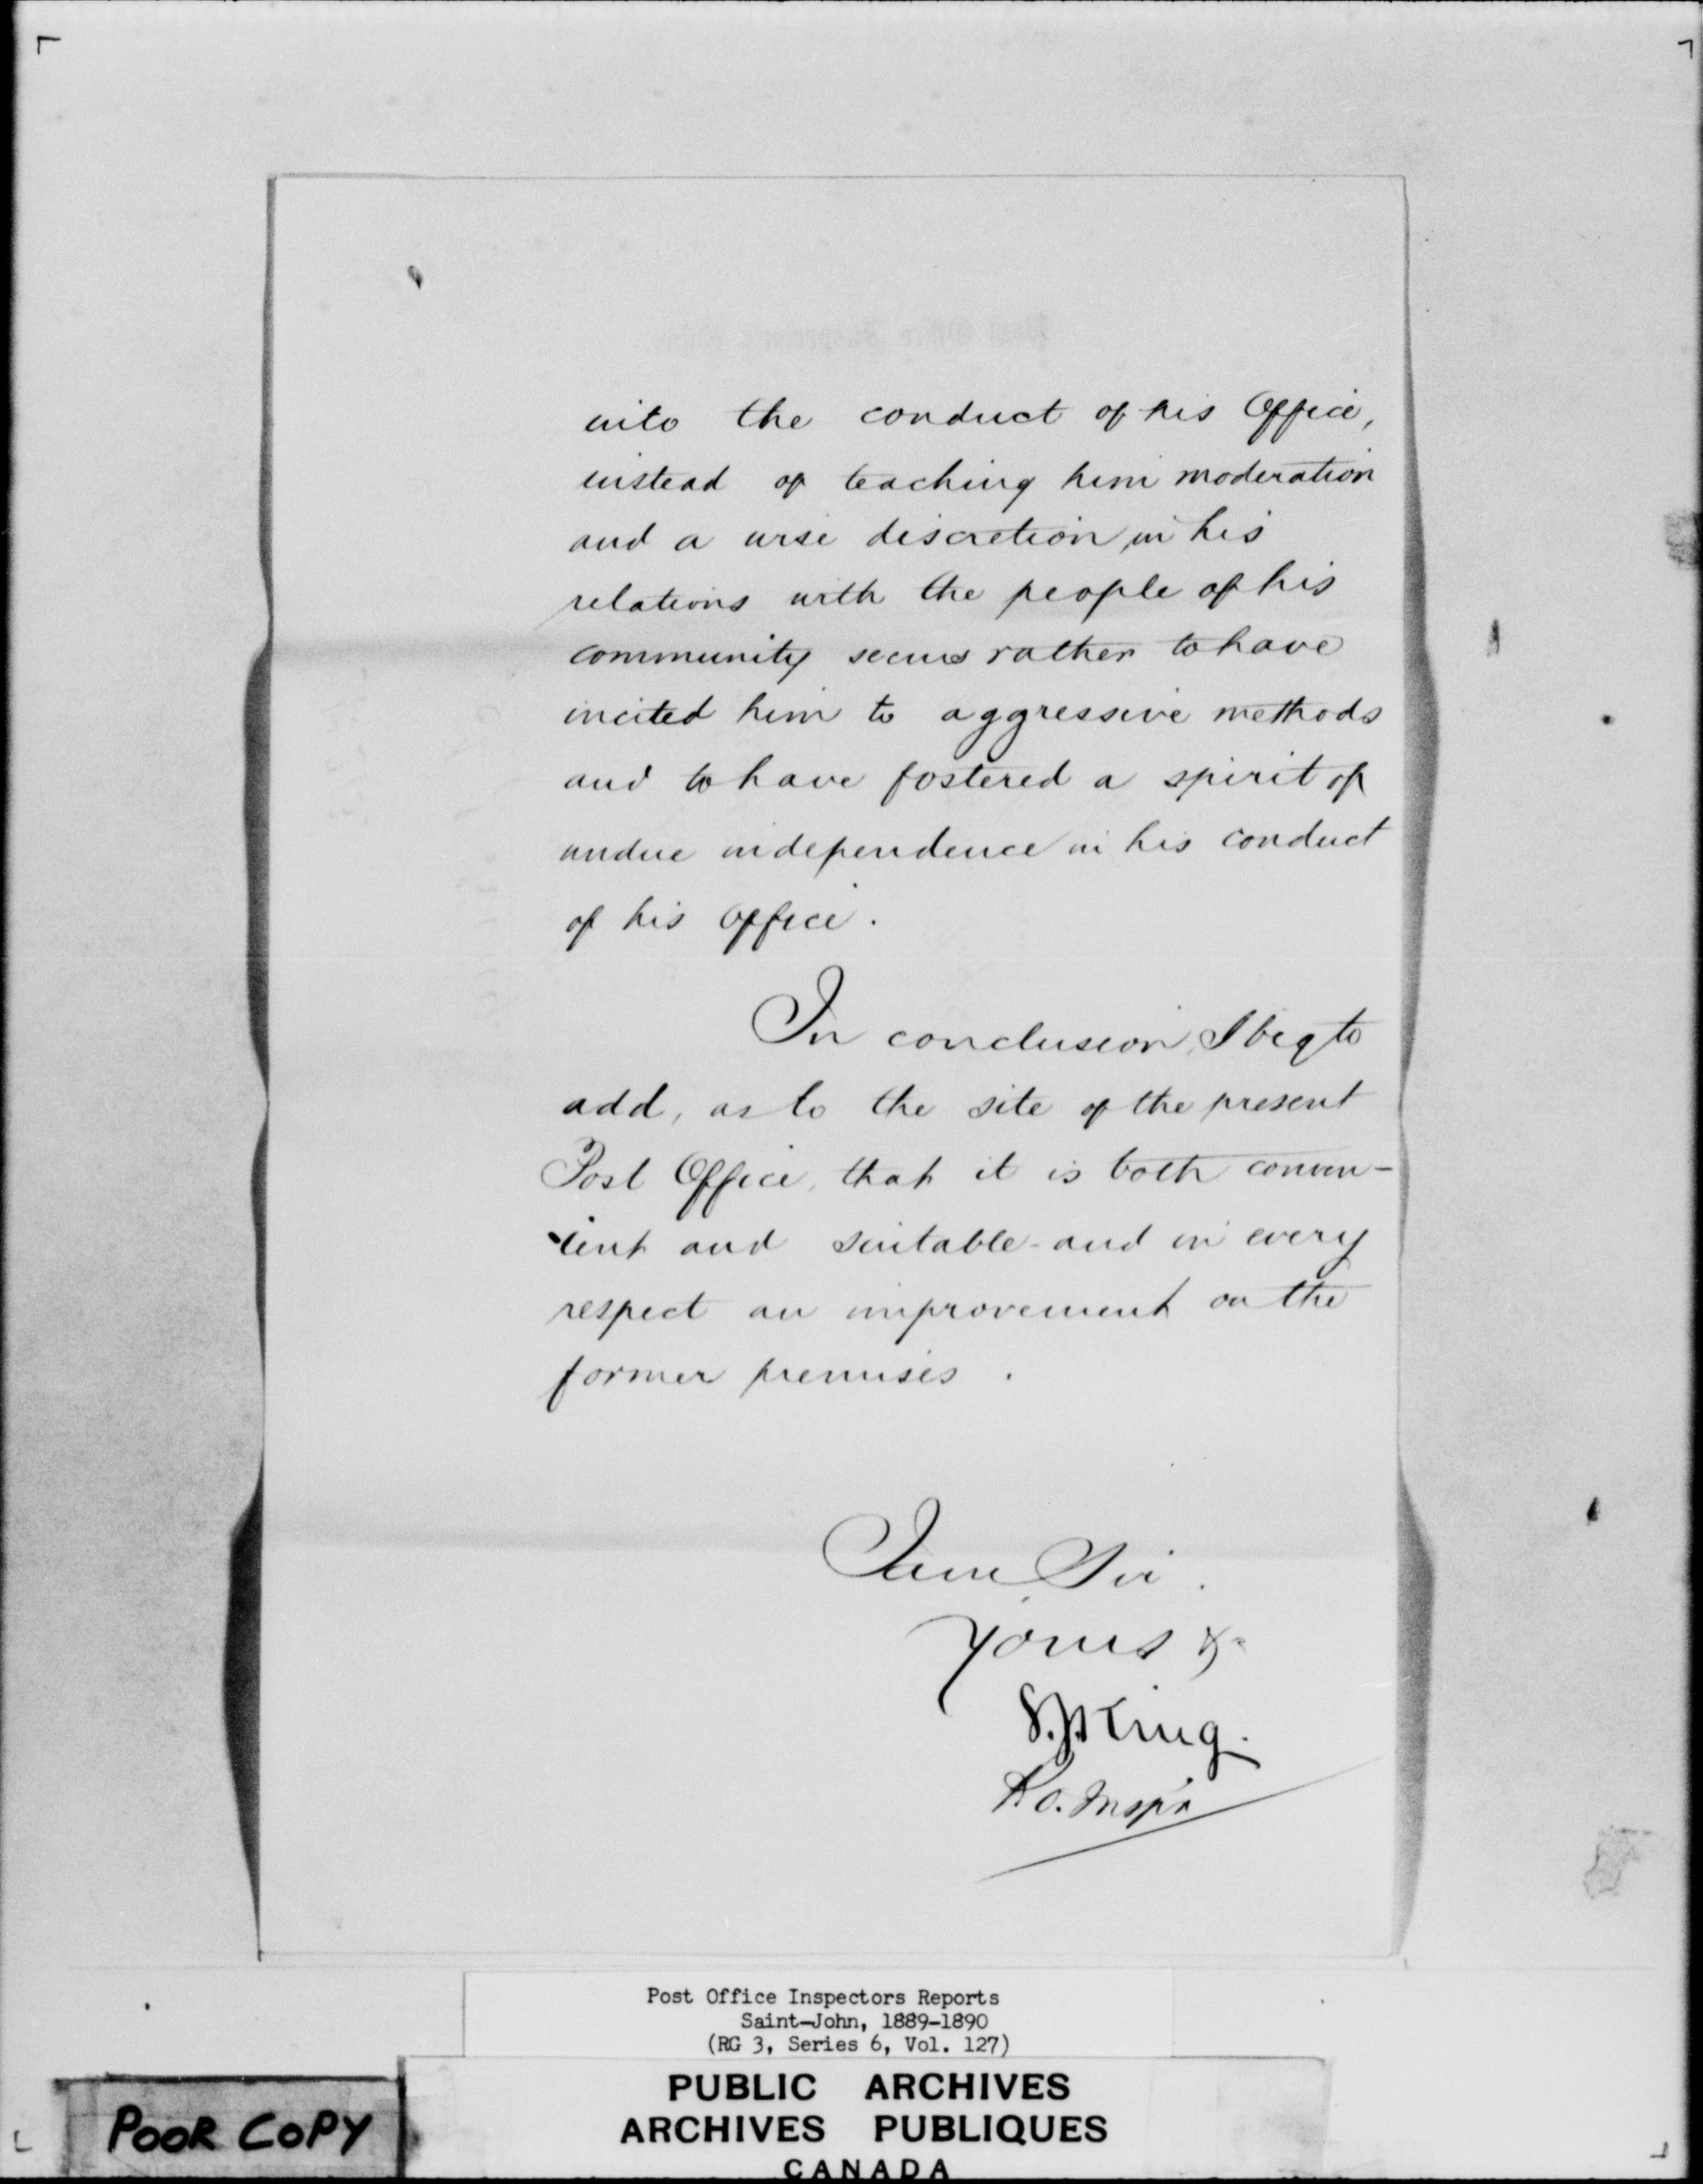 into the conduct of his Office,
instead of teaching him moderation
and a wise discretion in his
relations with the people of his
community seems rather to have
incited him to aggressive methods
and to have fostered a spirit of
undue independence in his conduct
of his office.
In conclusion, I beg to
add, as to the site of the present
Post Office, that it is both conven-
ient and suitable - and in every
respect an improvement on the
former premises.
I am Sir.
Yours &c
S.J. King.
P.O. Inspr
Post Office Inspectors Reports
Saint-John, 1889-1890
(RG 3, Series 6, Vol. 127)
PUBLIC ARCHIVES
ARCHIVES PUBLIQUES
CANADA
POOR COPY